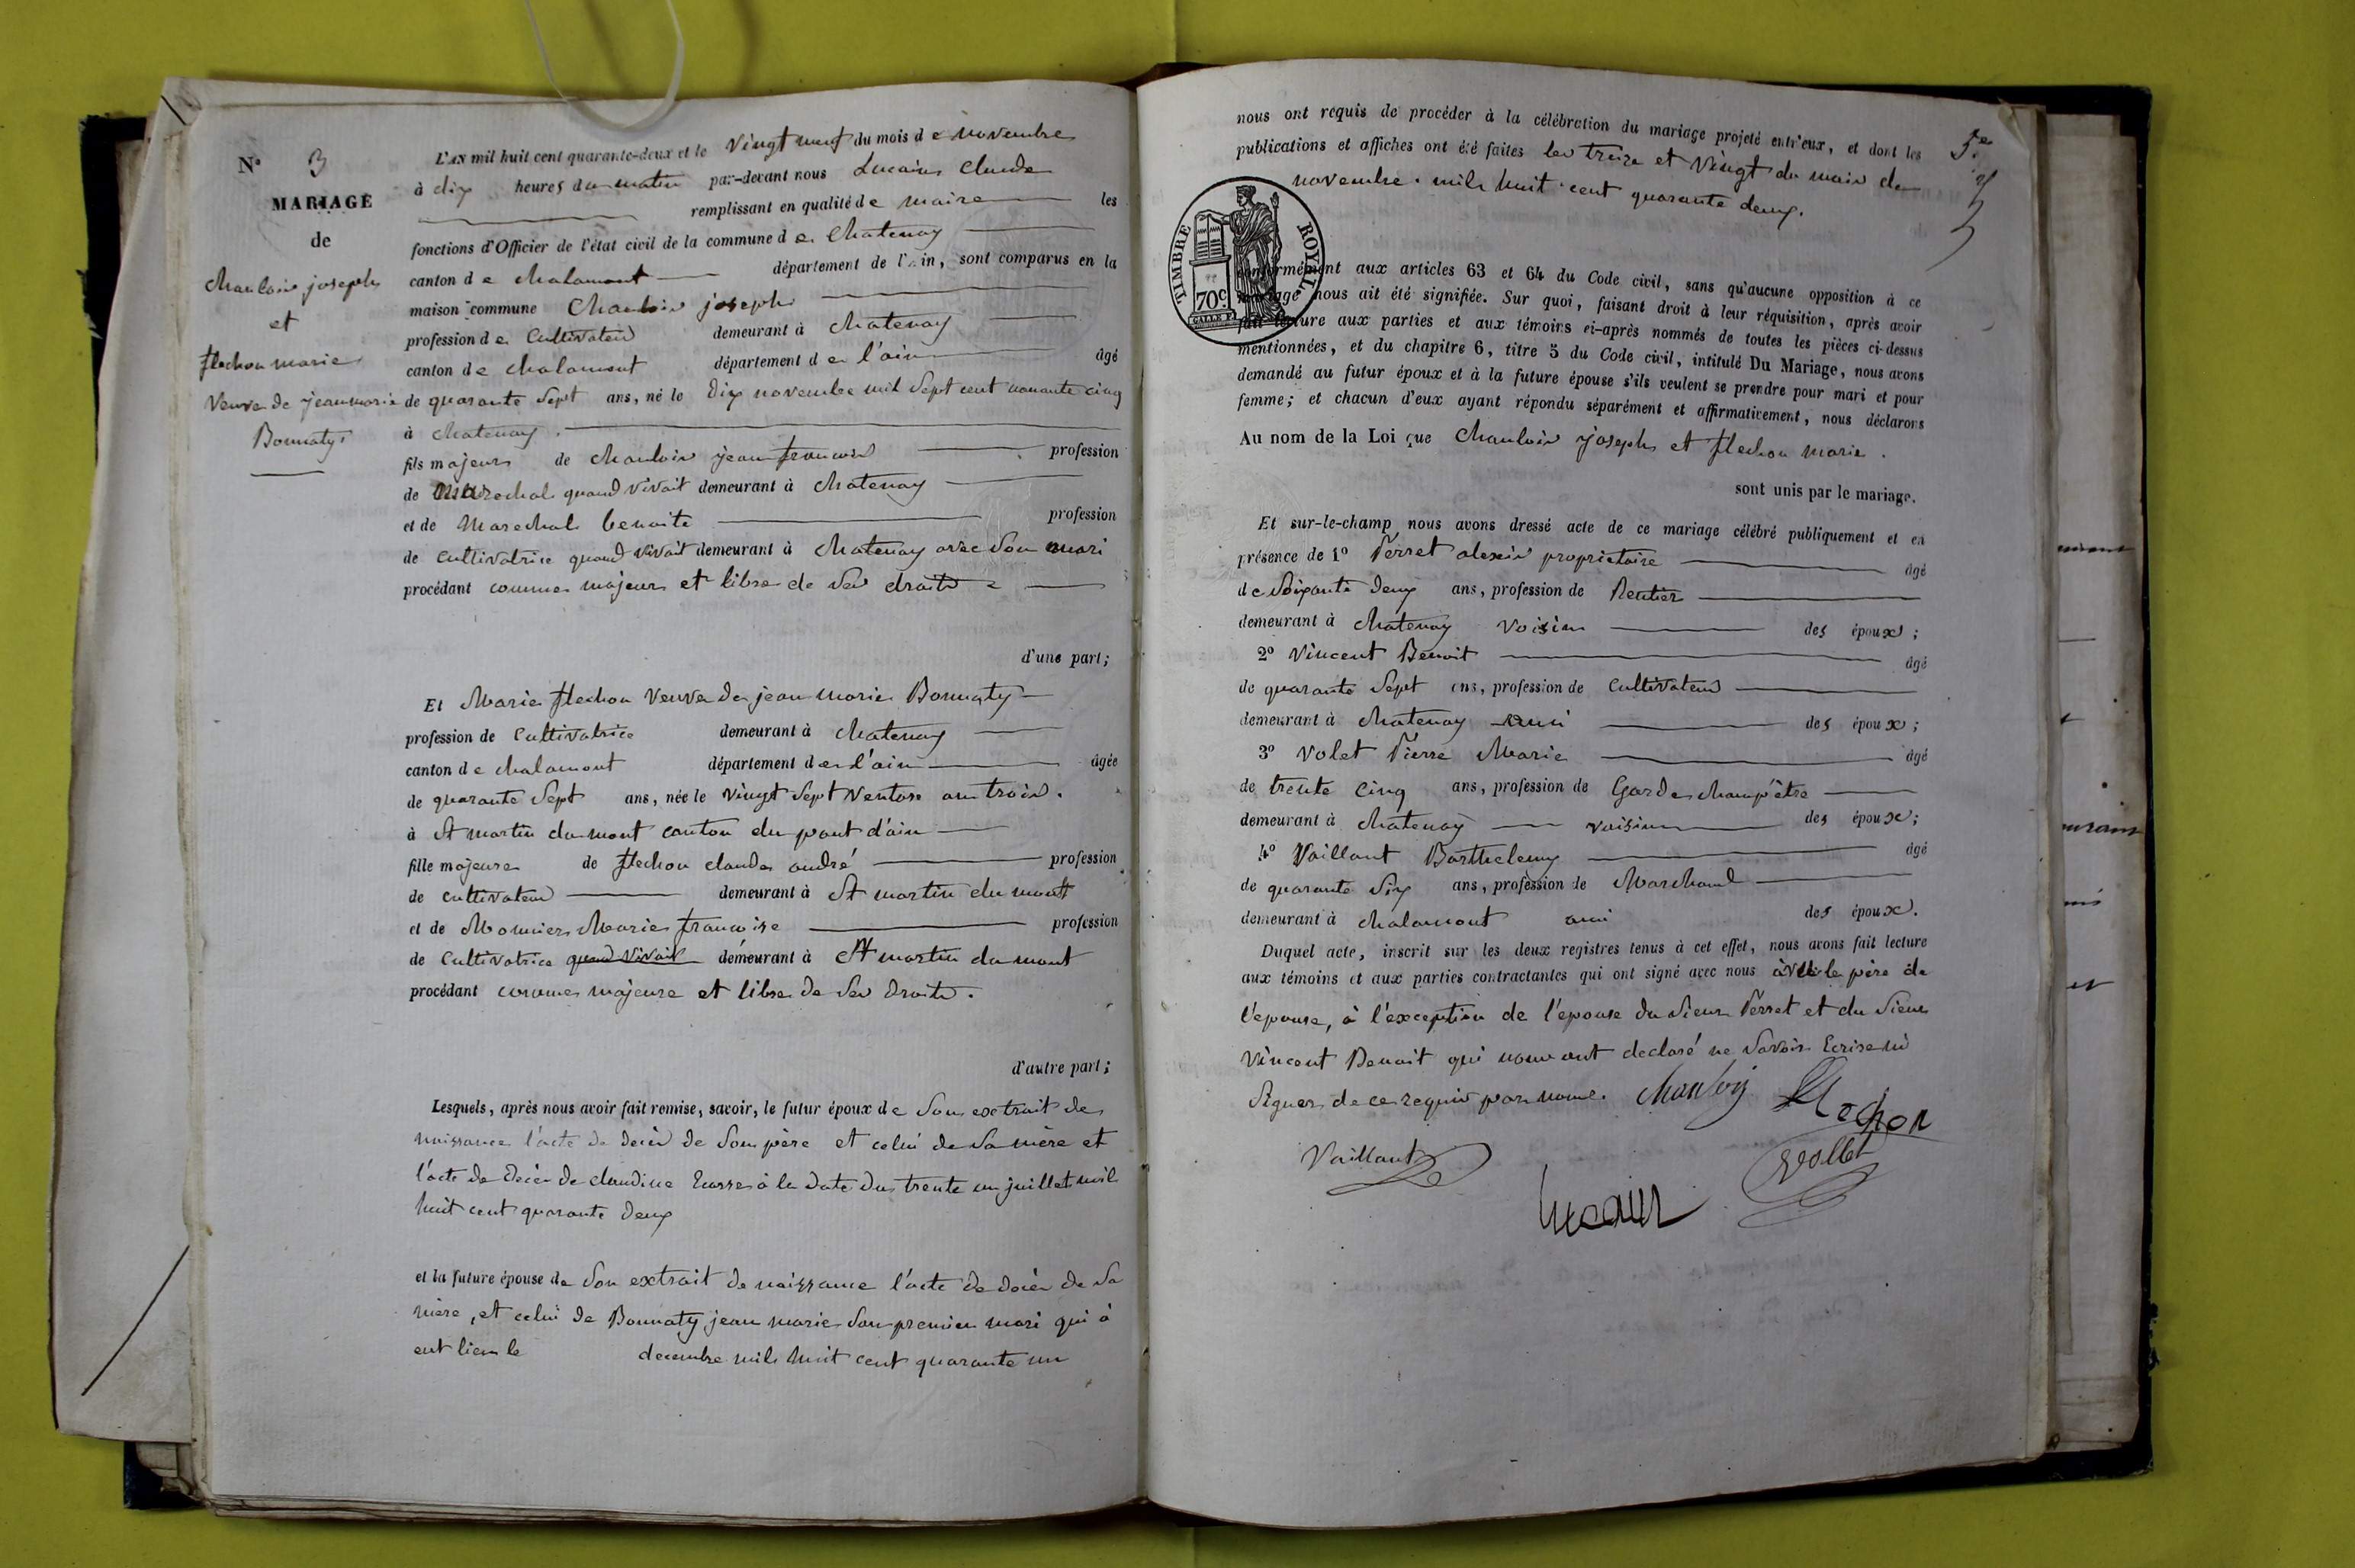 N° 3
MARIAGE
de
Chanloin joseph
et
flechon marie
Veuve de jean marie
Bonnaty
L'AN mil huit cent quarante-deux et le Vingt neuf du mois de novembre
à dix heures du matin par-devant nous Lucain Claude
remplissant en qualité de maire les
fonctions d'Officier de l'état civil de la commune de Chatenay
canton de chalamont département de l'Ain, sont comparus en la
maison commune Chanloin joseph
profession de Cultivateur demeurant à Chatenay
canton de chalamont département de l'ain âgé
de quarante Sept ans, né le dix novembre mil Sept cent nonante cinq
à Chatenay.
fils majeur de Chanloin jean francois profession
de Marechal quand vivait demeurant à Chatenay
et de Marechal benoite profession
de Cultivatrice quand vivait demeurant à Chatenay avec Son mari
procédant comme majeur et libre de Ses droits
d'une part;
Et Marie flechon Veuve de jean marie Bonnaty
profession de Cultivatrice demeurant à Chatenay
canton de chalamont département de l'ain âgée
de quarante Sept ans, née le Vingt Sept Ventose an trois.
à St martin du mont canton du pont d'ain
fille majeure de flechon claude andré profession
de cultivateur demeurant à St martin du mont
et de Monnier Marie francoise profession
de Cultivatrice quand vivait demeurant à St martin du mont
procédant comme majeure et libre de Ses droits.
d'autre part;
Lesquels, après nous avoir fait remise, savoir, le futur époux de Son extrait de
naissance l'acte de decès de Son père et celui de Sa mère et
l'acte de decès de claudine à la date du trente un juillet mil
huit cent quarante deux
et la future épouse de Son extrait de naissance l'acte de decès de Sa
mère, et celui de Bonnaty jean marie Son premier mari qui à
eut lieu le decembre mil huit cent quarante un
nous ont requis de procéder à la célébration du mariage projeté entr'eux, et dont les
publications et affiches ont été faites les treize et Vingt du mois de
novembre mil huit cent quarante deux.
TIMBRE ROYAL
70c
conformément aux articles 63 et 64 du Code civil, sans qu'aucune opposition à ce
mariage nous ait été signifiée. Sur quoi, faisant droit à leur réquisition, après avoir
fait lecture aux parties et aux témoins ci-après nommés de toutes les pièces ci-dessus
mentionnées, et du chapitre 6, titre 5 du Code civil, intitulé Du Mariage, nous avons
demandé au futur époux et à la future épouse s'ils veulent se prendre pour mari et pour
femme; et chacun d'eux ayant répondu séparément et affirmativement, nous déclarons
Au nom de la Loi que Chanloin joseph et flechon marie.
sont unis par le mariage.
Et sur-le-champ nous avons dressé acte de ce mariage célébré publiquement et en
présence de 1° Perret alexis proprietaire âgé
de Soixante deux ans, profession de Rentier
demeurant à Chatenay Voisin des époux;
2° Vincent Benoit âgé
de quarante Sept ans, profession de Cultivateur
demeurant à Chatenay ami des époux;
3° Volet Pierre Marie âgé
de trente cinq ans, profession de Garde champêtre
demeurant à Chatenay voisin des époux;
4° Vaillant Barthelemy âgé
de quarante Six ans, profession de Marchand
demeurant à Chalamont ami des époux.
Duquel acte, inscrit sur les deux registres tenus à cet effet, nous avons fait lecture
aux témoins et aux parties contractantes qui ont signé avec nous avec le père de
l'epouse, à l'exception de l'epouse du Sieur Perret et du Sieur
Vincent Benoit qui nous ont declaré ne Savoir Ecrire ni
Signer de ce requis par nous. Chanloin flechon
Vaillant
Vollet
Lucain